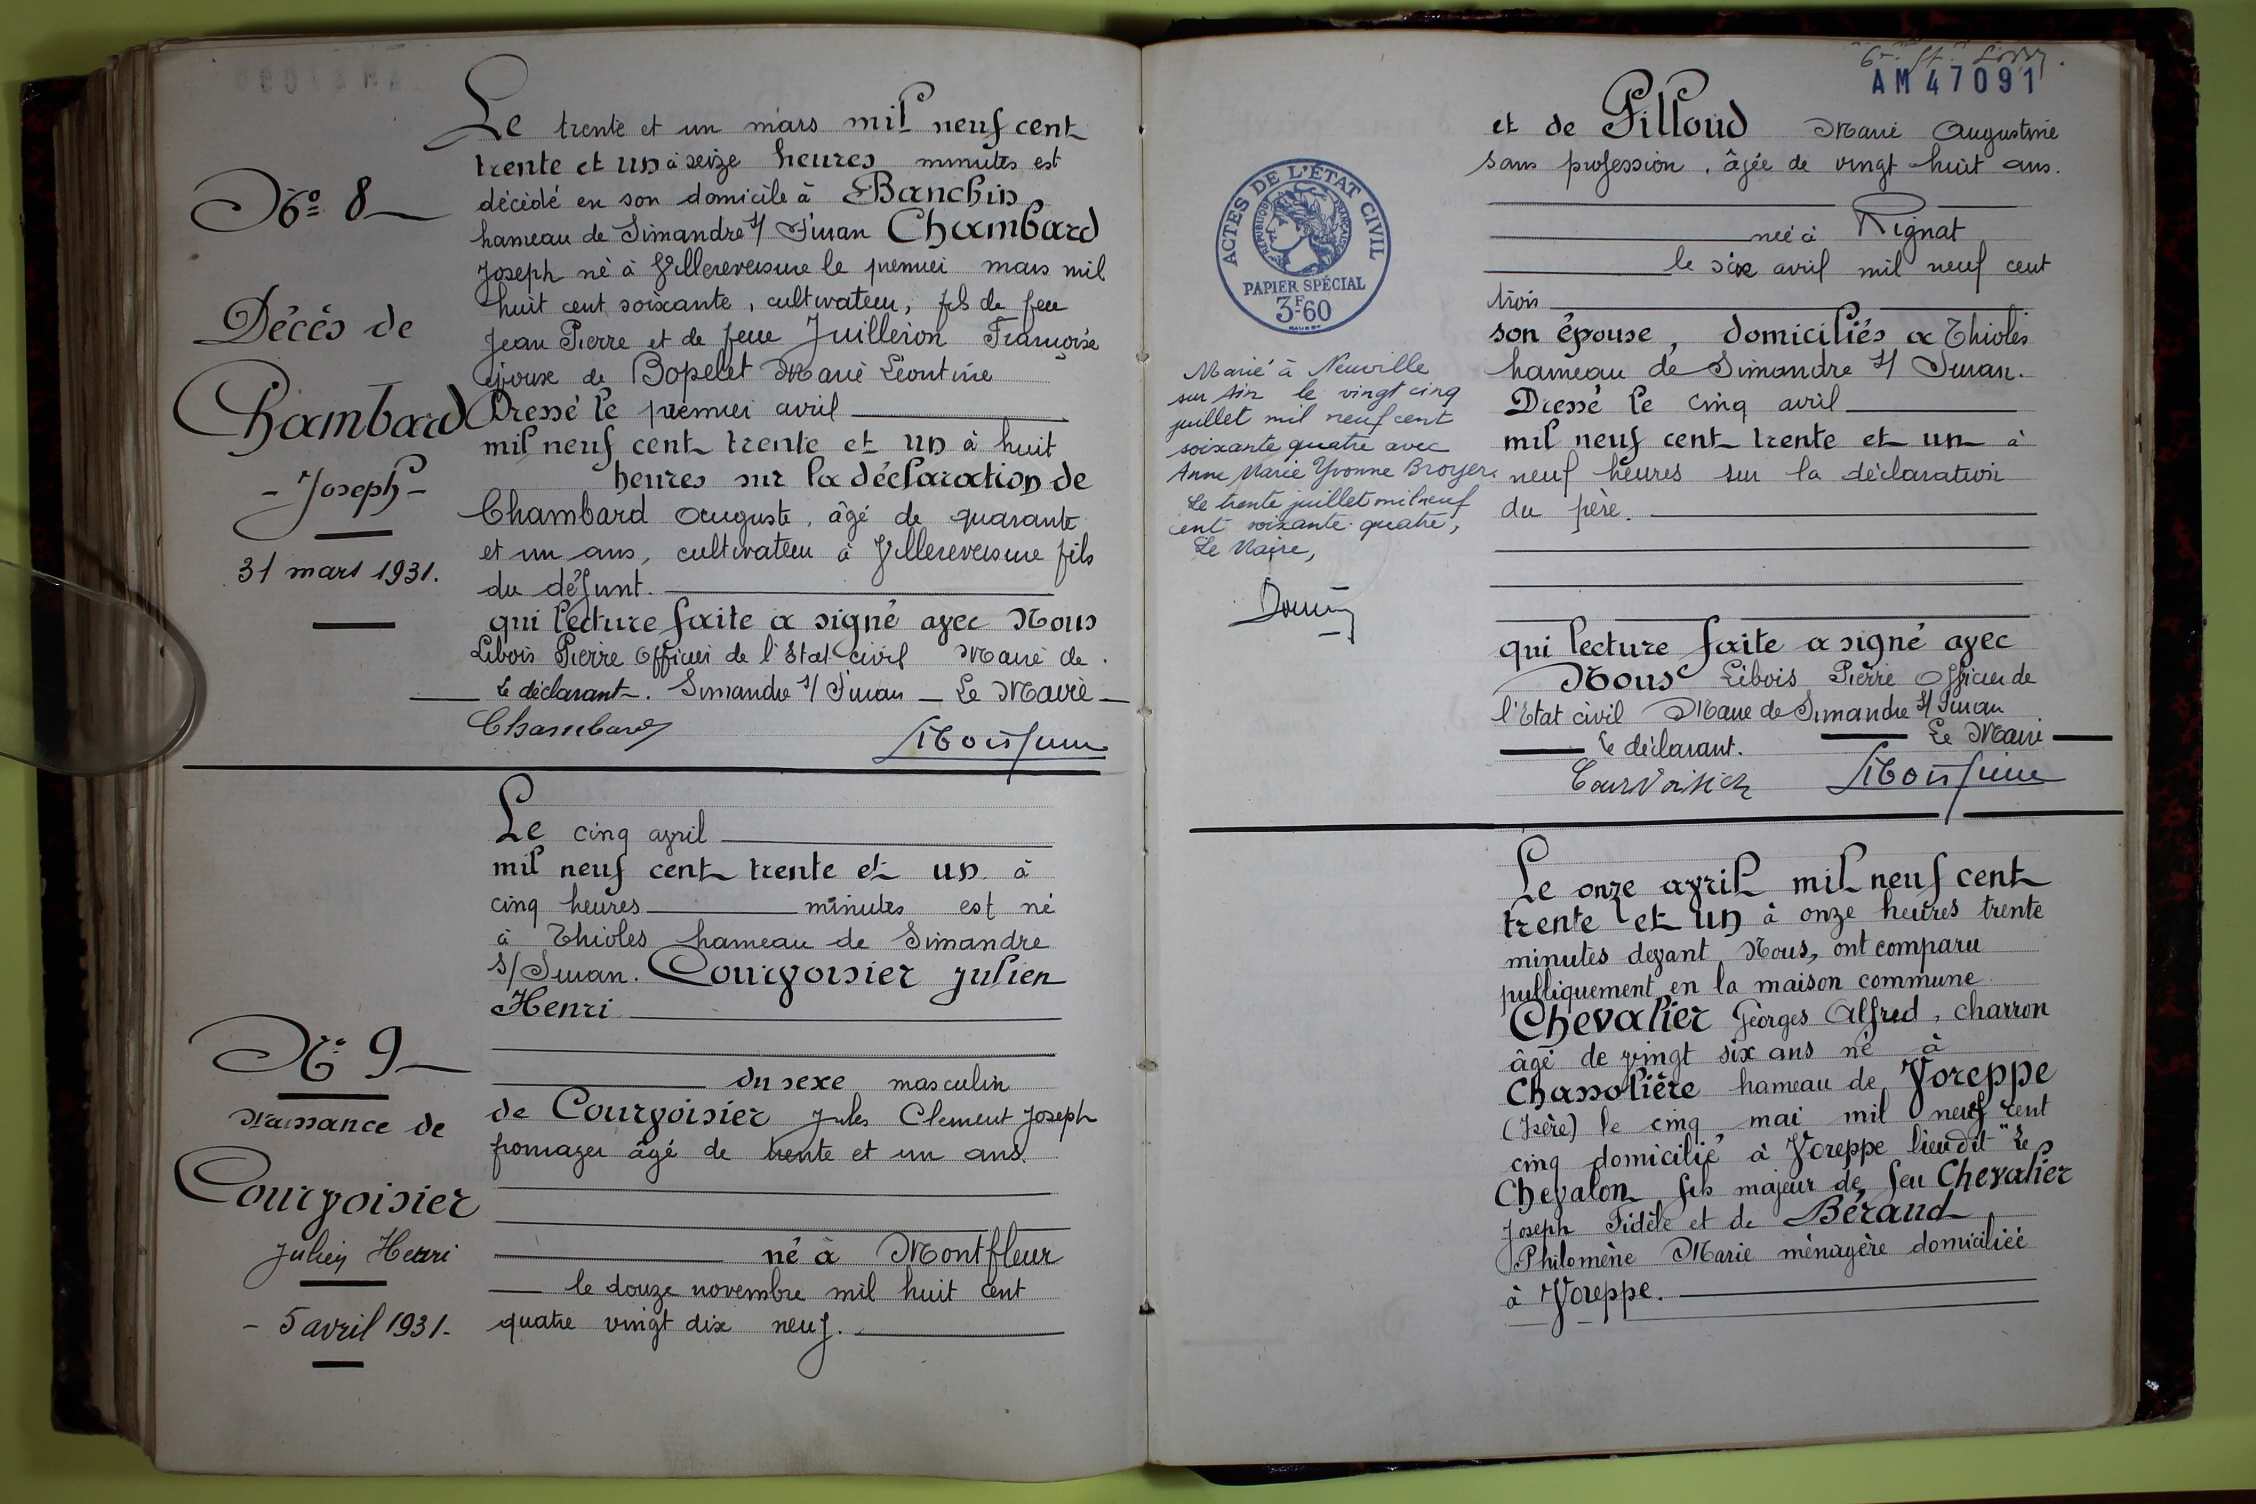 N° 8
Décés de
Chambard
- Joseph -
31 mars 1931.
Le trente et un mars mil neuf cent
trente et un à seize heures minutes est
décédé en son domicile à Banchin
hameau de Simandre s/ Suran Chambard
Joseph né à Villereversure le premier mars mil
huit cent soixante, cultivateur, fils de feu
Jean Pierre et de feue Juilleron Françoise
époux de Bopelet Marie Léontine
Dressé le premier avril
mil neuf cent trente et un à huit
heures sur la déclaration de
Chambard Auguste, âgé de quarante
et un ans, cultivateur à Villereversure fils
du défunt.
qui lecture faite a signé avec Nous
Libois Pierre Officier de l'Etat civil Maire de
le déclarant. Simandre s/ Suran - Le Maire -
Chambard
N° 9
Naissance de
Courvoisier
Julien Henri
- 5 avril 1931.-
Le cinq avril
mil neuf cent trente et un à
cinq heures minutes est né
à Thioles hameau de Simandre
s/Suran. Courvoisier Julien
Henri
du sexe masculin
de Courvoisier Jules Clement Joseph
fromager âgé de trente et un ans.
né à Montfleur
le douze novembre mil huit cent
quatre vingt dix neuf.
AM47091
et de Pilloud Marie Augustine
sans profession, âgée de vingt-huit ans.
née à Rignat
le six avril mil neuf cent
trois
son épouse, domiciliés à Thioles
hameau de Simandre s/ Suran.
Dressé le cinq avril
mil neuf cent trente et un à
neuf heures sur la déclaration
du père.
qui lecture faite a signé avec
Nous Libois Pierre Officier de
l'Etat civil Maire de Simandre s/ Suran
le déclarant. Le Maire
Courvoisier
ACTES DE L'ÉTAT CIVIL
RÉPUBLIQUE FRANÇAISE
PAPIER SPÉCIAL
3F·60
Marié à Neuville
sur Ain le vingt cinq
juillet mil neuf cent
soixante quatre avec
Anne Marie Yvonne Broyer.
Le trente juillet mil neuf
cent soixante quatre,
Le Maire,
Le onze avril mil neuf cent
trente et un à onze heures trente
minutes devant Nous, ont comparu
publiquement en la maison commune
Chevalier Georges Alfred, charron
âgé de vingt six ans né à
Chassolière hameau de Voreppe
(Isère) le cinq mai mil neuf cent
cinq domicilié à Voreppe lieudit "Le
Chevalon fils majeur de feu Chevalier
Joseph Fidèle et de Béraud
Philomène Marie ménagère domiciliée
à Voreppe.